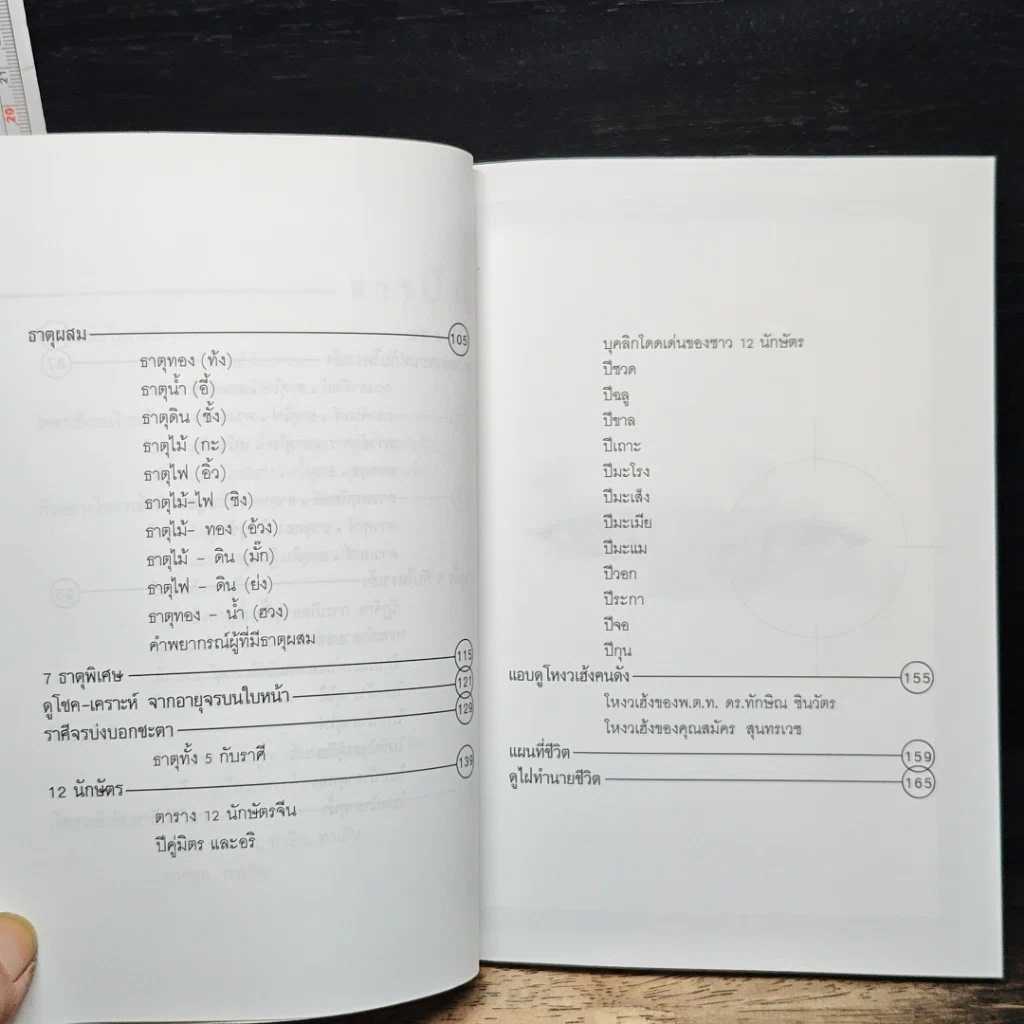 21
20
ธาตุผสม 105
ธาตุทอง (ท้ง)
ธาตุน้ำ (อี้)
ธาตุดิน (ซั้ง)
ธาตุไม้ (กะ)
ธาตุไฟ (อิ้ว)
ธาตุไม้-ไฟ (ชิง)
ธาตุไม้- ทอง (อ้วง)
ธาตุไม้ - ดิน (มั๊ก)
ธาตุไฟ - ดิน (ย่ง)
ธาตุทอง - น้ำ (ฮวง)
คำพยากรณ์ผู้ที่มีธาตุผสม
7 ธาตุพิเศษ 115
ดูโชค-เคราะห์ จากอายุจรบนใบหน้า 121
ราศีจรบ่งบอกชะตา 129
ธาตุทั้ง 5 กับราศี
12 นักษัตร 139
ตาราง 12 นักษัตรจีน
ปีคู่มิตร และอริ
บุคลิกโดดเด่นของชาว 12 นักษัตร
ปีชวด
ปีฉลู
ปีขาล
ปีเถาะ
ปีมะโรง
ปีมะเส็ง
ปีมะเมีย
ปีมะแม
ปีวอก
ปีระกา
ปีจอ
ปีกุน
แอบดูโหงวเฮ้งคนดัง 155
โหงวเฮ้งของพ.ต.ท. ดร.ทักษิณ ชินวัตร
โหงวเฮ้งของคุณสมัคร สุนทรเวช
แผนที่ชีวิต 159
ดูไฝทำนายชีวิต 165